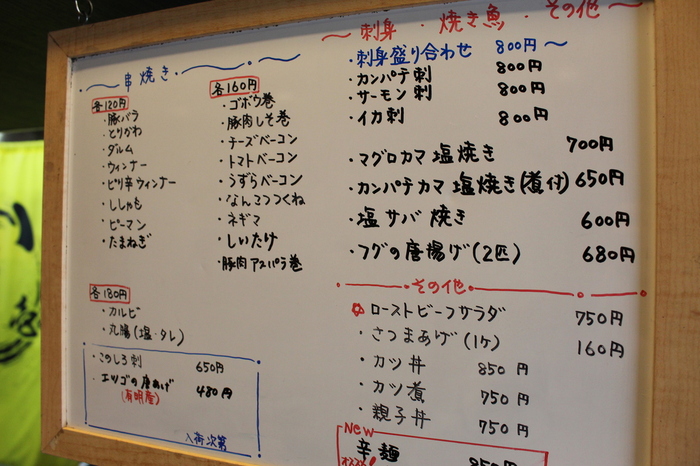 串焼き
各120円
・豚バラ
・とりかわ
・ダルム
・ウィンナー
・ピリ辛ウィンナー
・ししゃも
・ピーマン
・たまねぎ
各160円
・ゴボウ巻
・豚肉しそ巻
・チーズベーコン
・トマトベーコン
・うずらベーコン
・なんこつつくね
・ネギマ
・しいたけ
・豚肉アスパラ巻
各180円
・カルビ
・丸腸(塩・タレ)
・このしろ刺 650円
・エツゴの唐あげ 480円
(有明産)
入荷次第
〜刺身・焼き魚・その他〜
・刺身盛り合わせ 800円〜
・カンパチ刺 800円
・サーモン刺 800円
・イカ刺 800円
・マグロカマ塩焼き 700円
・カンパチカマ塩焼き(煮付) 650円
・塩サバ焼き 600円
・フグの唐揚げ(2匹) 680円
その他
ローストビーフサラダ 750円
・さつまあげ(1ケ) 160円
・カツ丼 850円
・カツ煮 750円
・親子丼 750円
New
辛麺 850円